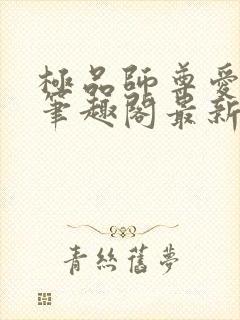 極品師尊愛
筆趣閣最新
青絲舊夢